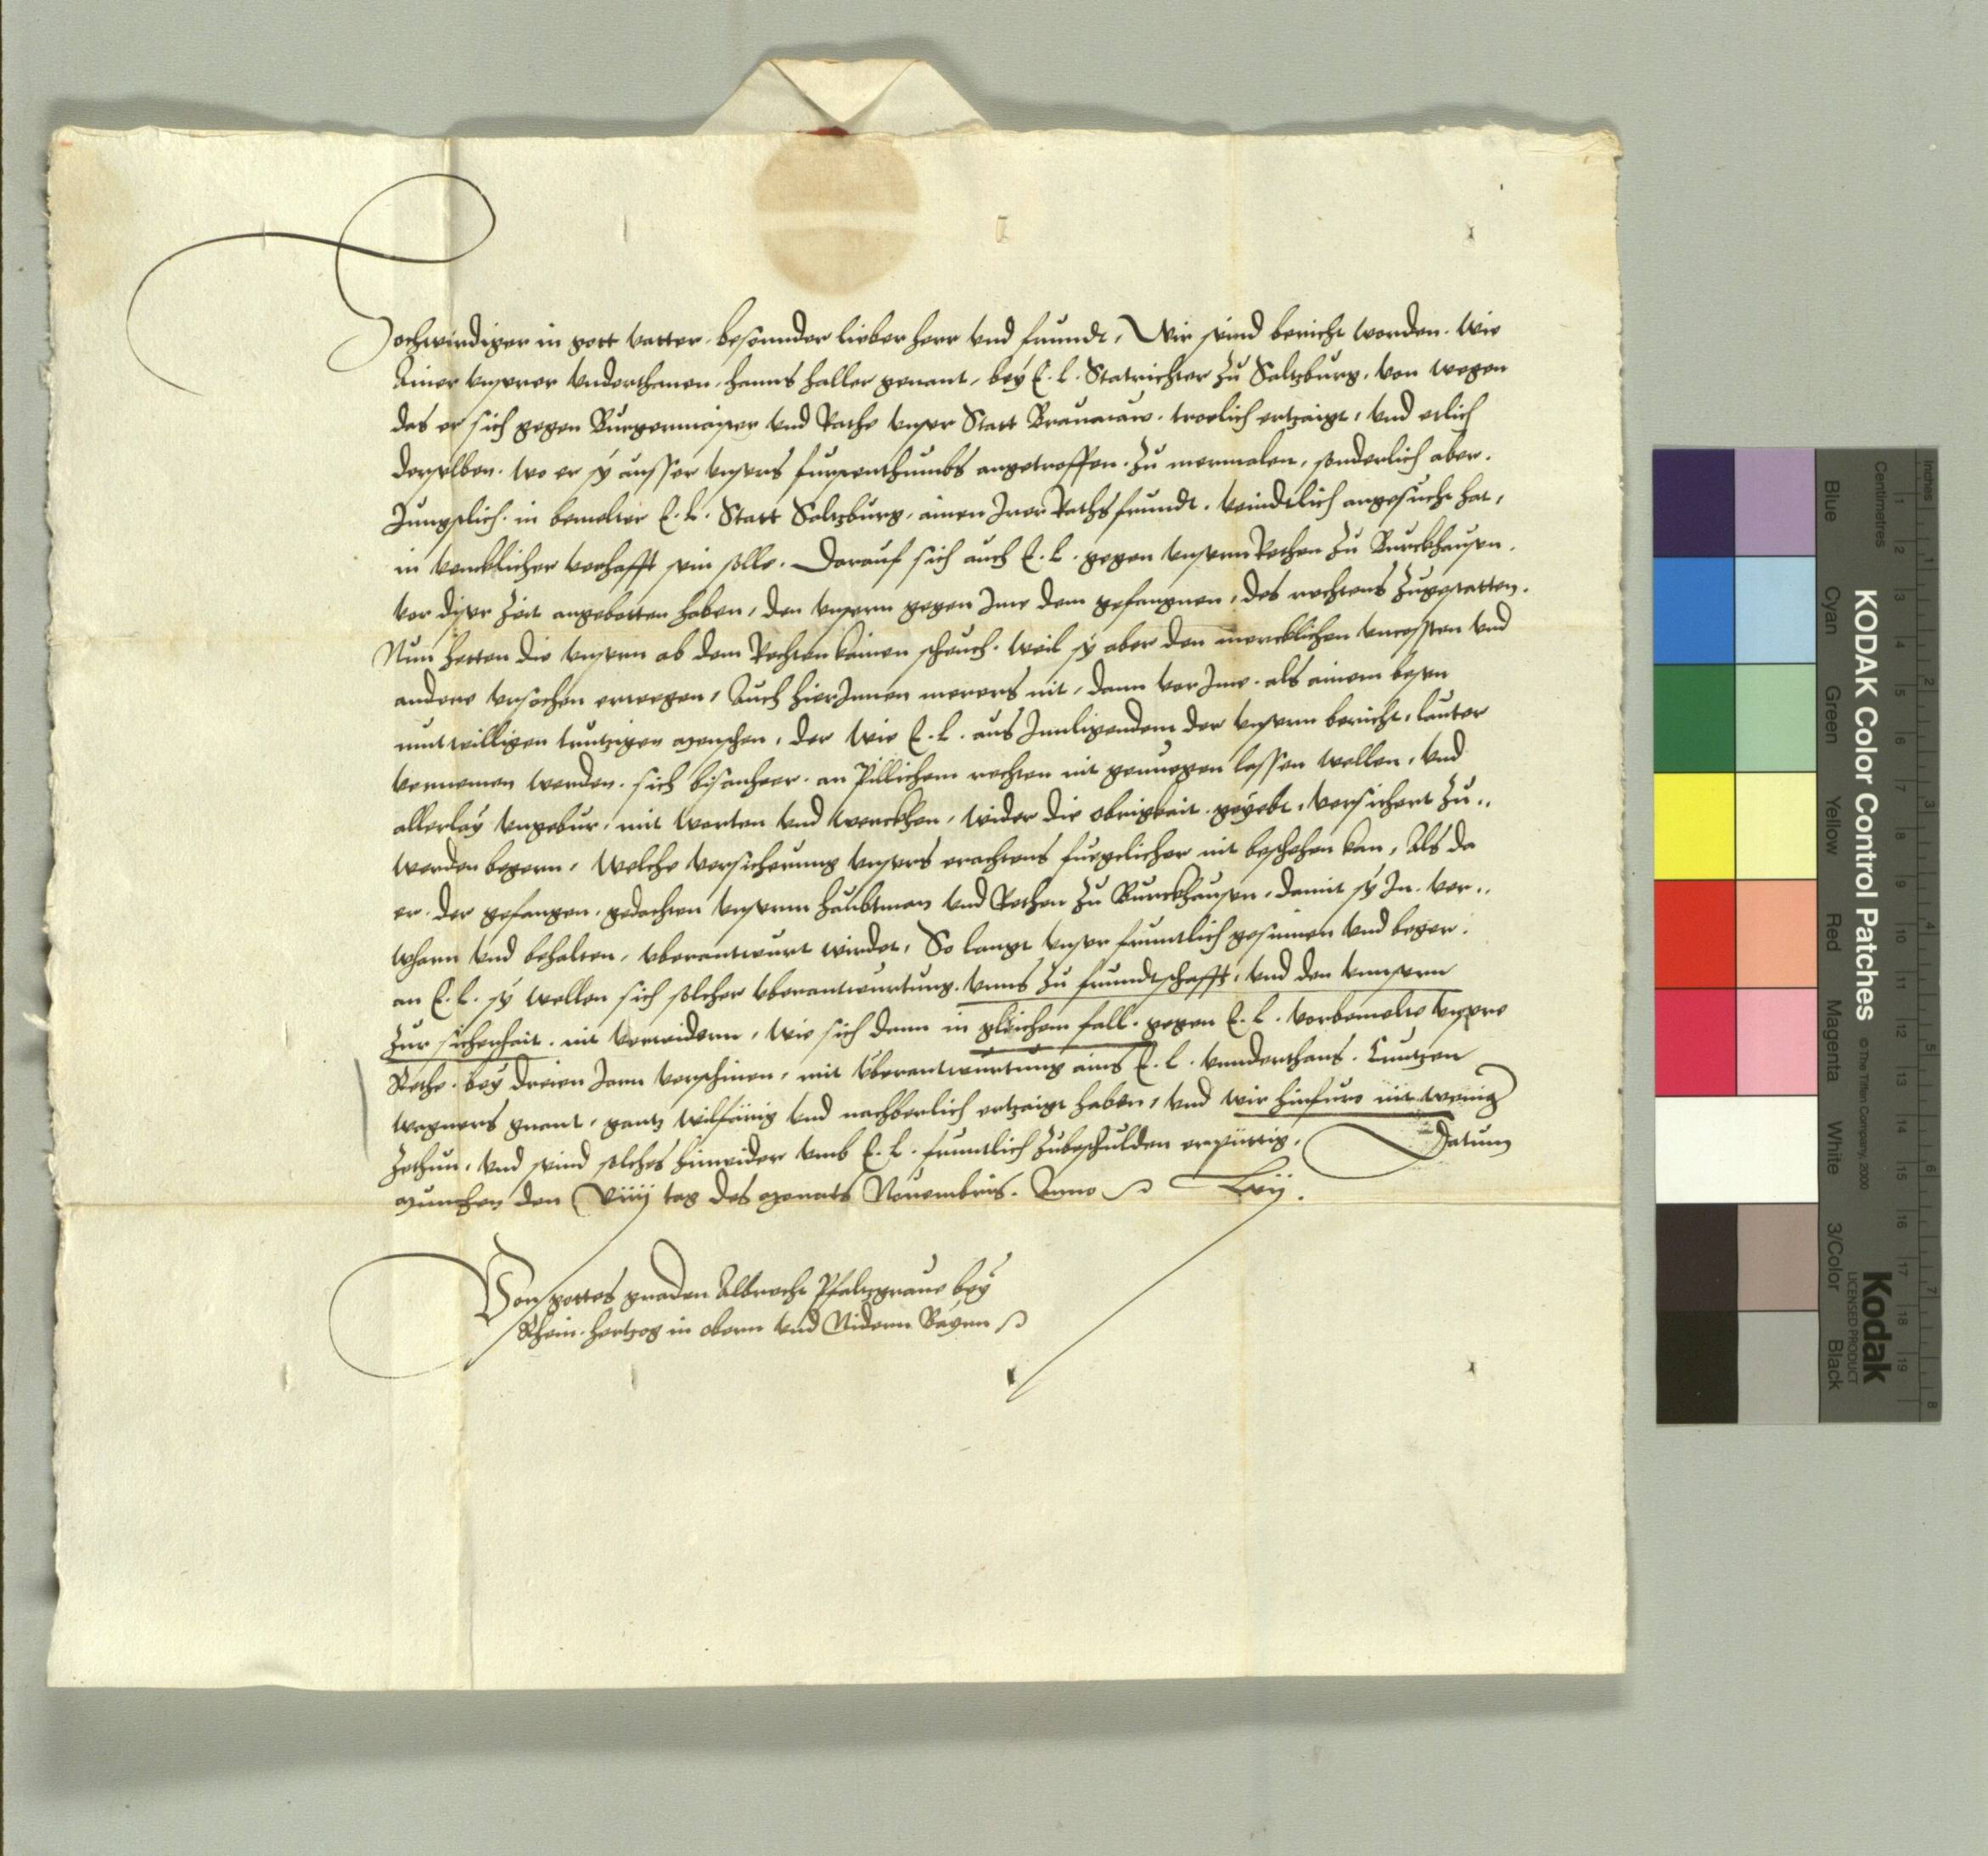 Hochwirdiger in gott vatter, besonnder lieber herr vnd freundt, Wir seind bericht worden, wie
Ainer vnserer vnderthanen, Hanns Haller genant, bey E. L. Statrichter zu Saltzburg, von wegen
das er sich gegen Burgermaister vnd Rathe vnser Statt Braunaw, troelich ertzaigt, vnd etlich
derselben, wo er sy ausser vnsers furstenthumbs angetroffen, zu mermalen, sonderlich aber,
Jungstlich, in bemelter E. L. Statt Saltzburg, ainen Irer Rathsfreundt, veindtlich angesucht hat,
in vencklicher verhafft sein solle. Darauf sich auch E. L. gegen vnsern Rethen zu Burckhausen,
vor diser zeit angebotten haben, den vnsern gegen Ime dem gefangnen, des rechtens zugestatten.
Nun hetten die vnsern ab dem Rechten kainen scheuch, weil sy aber den mercklichen vncossten vnd
andere vrsachen erwegen, Auch hierInnen merers nit, dann vor Ime, als ainem besen
mutwilligen trutzigen menschen, der wie E. L. aus Innligendem der vnsern bericht, lauter
vernemen werden, sich bisanheer, an Pillichem rechten nit genuegen lassen wellen, vnd
allerlay vngebur, mit worten vnd werckhen, wider die obrigkait geyebt, versichert zu..
werden begern, Welche versicherung vnsers erachtens fueglicher nit beschehen kan, Als da
er, der gefangen, gedachten vnserm Haubtman vnd Rethen zu Burckhausen, damit sy In ver..
wharn vnd behalten, vberantwurt wirdet, So langt vnser freuntlich gesinnen vnd beger,
an E. L. sy wellen sich solcher vberantwurtung, vnns zu freundtschafft, vnd den vnnsern
zur sicherhait, nit verwidern, wie sich dann in gleichem fall, gegen E. L. vorbemelte vnsere
Rethe, bey dreien Jarn verschinen, mit vberantwurtung ains E. L. vnnderthans, Cuntzen
wagners gnant, gantz wilfarig vnd nachberlich ertzaigt haben, vnd wir hinfuro nit wenig
zethun, vnd seind solches hinwider vmb E. L. freuntlich zubeschulden erpüttig. Datum
München den Viiij tag des Monats Nouembris. Anno Lvij.
Von gottes gnaden Albrecht Pfaltzgraue bey
Rhein, Hertzog in obern vnd Nidern Bayrn
KODAK Color Control Patches
© The Tiffen Company, 2000
Kodak
LICENSED PRODUCT
Inches
Centimetres
1 2 3 4 5 6 7 8
1 2 3 4 5 6 7 8 9 10 11 12 13 14 15 16 17 18 19
Blue Cyan Green Yellow Red Magenta White 3/Color Black